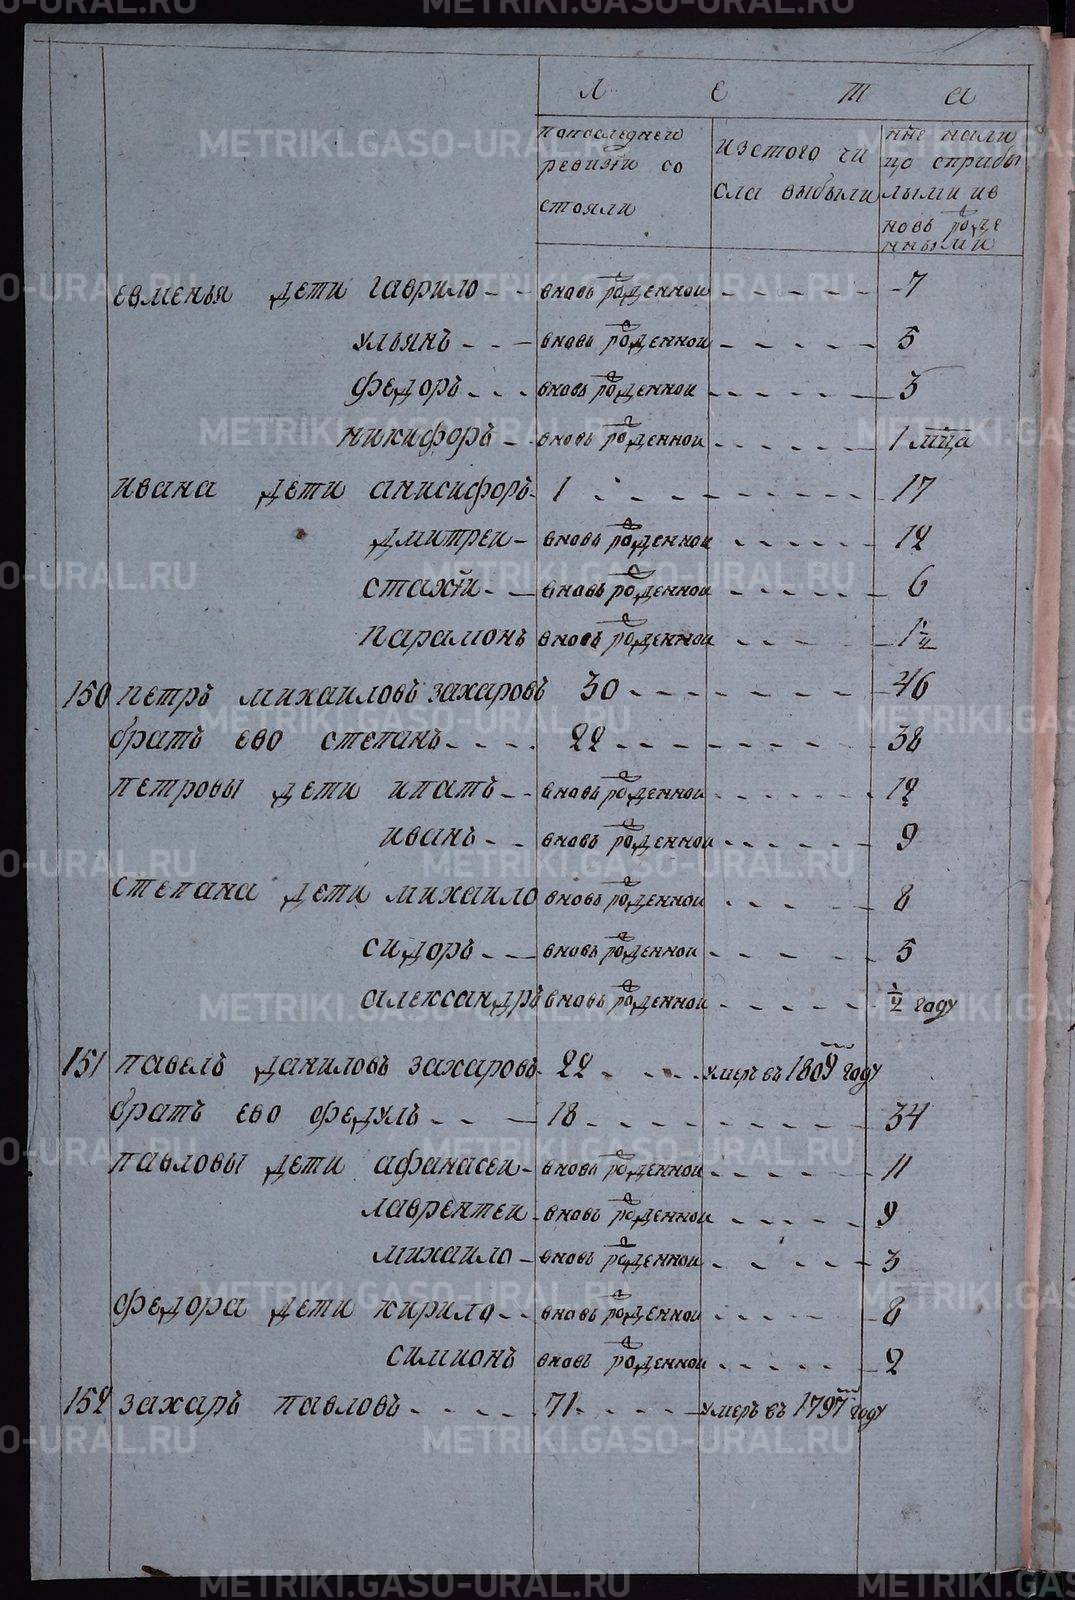 Л е т а
попоследней ревизіи со стояли
изстого чи сла выбыли
нне нали цо сприбы лыми ив новь рожде нными
евменья дети гаврило - - вновь рожденной - - - - - 7
ульянъ - - - вновь рожденной - - - - - 5
федоръ - - - вновь рожденной - - - - - 3
никифоръ - - вновь рожденной - - - - - 1 мца
ивана дети анисифоръ - 1 - - - - - - - - 17
дмитреи - вновь рожденной - - - - - 12
стахіи - - вновь рожденной - - - - - 6
парамонъ вновь рожденной - - - - 1 1/2
150 петръ михаиловъ захаровъ 30 - - - - - - - 46
братъ ево степанъ - - - - 22 - - - - - - - 38
петровы дети ипатъ - - вновь рожденной - - - - - 12
иванъ - - вновь рожденной - - - - - 9
степана дети михаило вновь рожденной - - - - 8
сидоръ - - - вновь рожденной - - - - - 5
александръ вновь рожденной - - - - - 1/2 году
151 павелъ даниловъ захаровъ - 22 - - - - умеръ въ 1809 году
братъ ево федулъ - - - 18 - - - - - - - - 34
павловы дети афанасеи - вновь рожденной - - - - - 11
лаврентеи - вновь рожденной - - - - - 9
михаило - вновь рожденной - - - - - 3
федора дети кирило - - вновь рожденной - - - - - 8
симионъ вновь рожденной - - - - - 2
152 захаръ павловъ - - - - - 71 - - - - умеръ въ 1797 году
METRIKI.GASO-URAL.RU